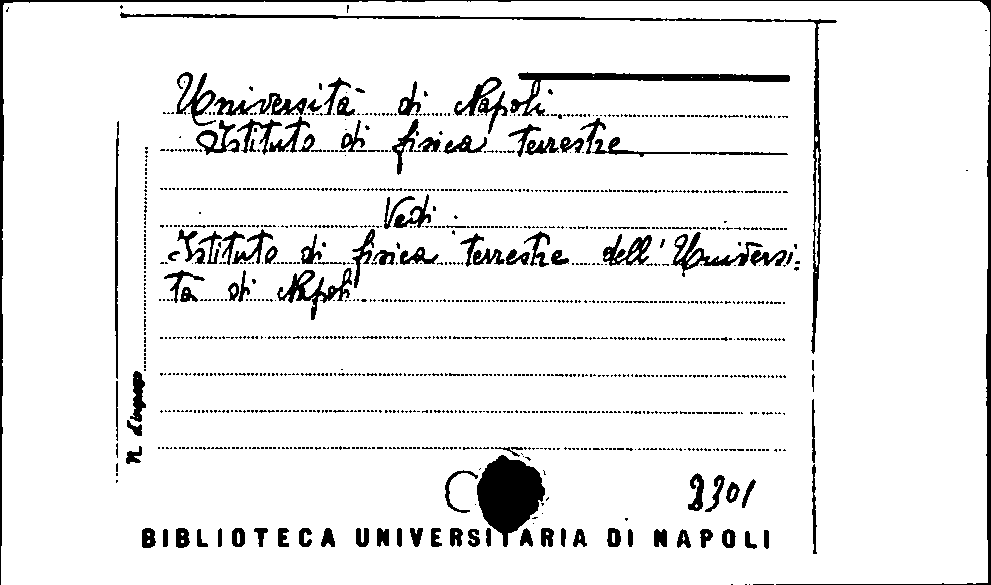 Università di Napoli.
Istituto di fisica terrestre.
Vedi
Istituto di fisica terrestre dell'Universi=
tà di Napoli.
N. d'ingresso
C
BIBLIOTECA UNIVERSITARIA DI NAPOLI